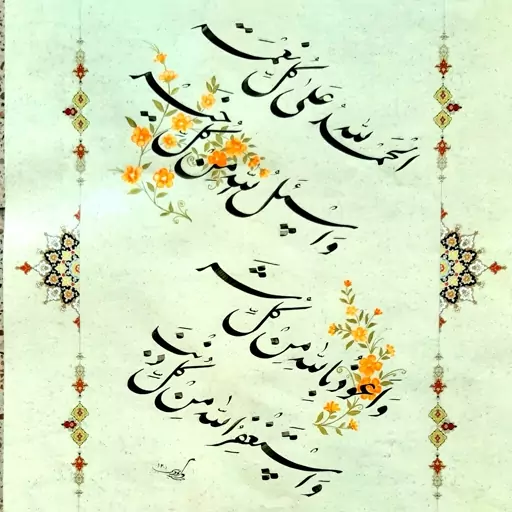 الحَمدُ لِلّٰهِ عَلیٰ کُلِّ نِعْمَة
وَاَسئَلُ اللهَ مِنْ کُلِّ خَیر
وَاَعُوذُ بِاللهِ مِنْ کُلِّ شَر
وَاَستَغْفِرُ اللهَ مِنْ کُلِّ ذَنْب